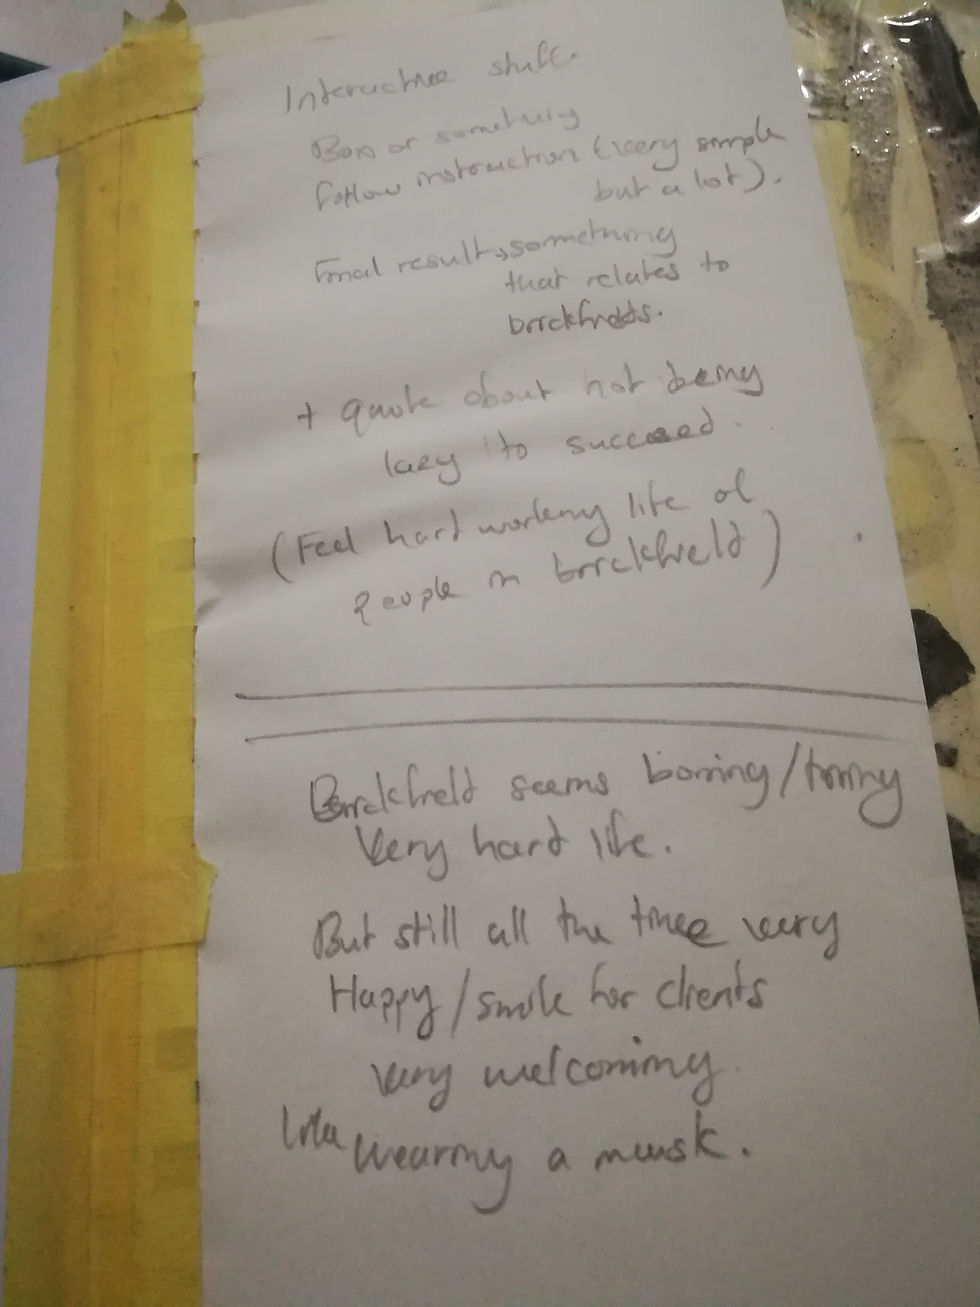 Interactive stuff.
Box or something
follow instruction (very simple
but a lot).
Final result, something
that relates to
brickfields.
+ quote about not being
lazy to succeed.
(Feel hard working life of
people in brickfield)
Brickfield seems boring/tiring
Very hard life.
But still all the time very
Happy/smile for clients
very welcoming.
Like wearing a mask.